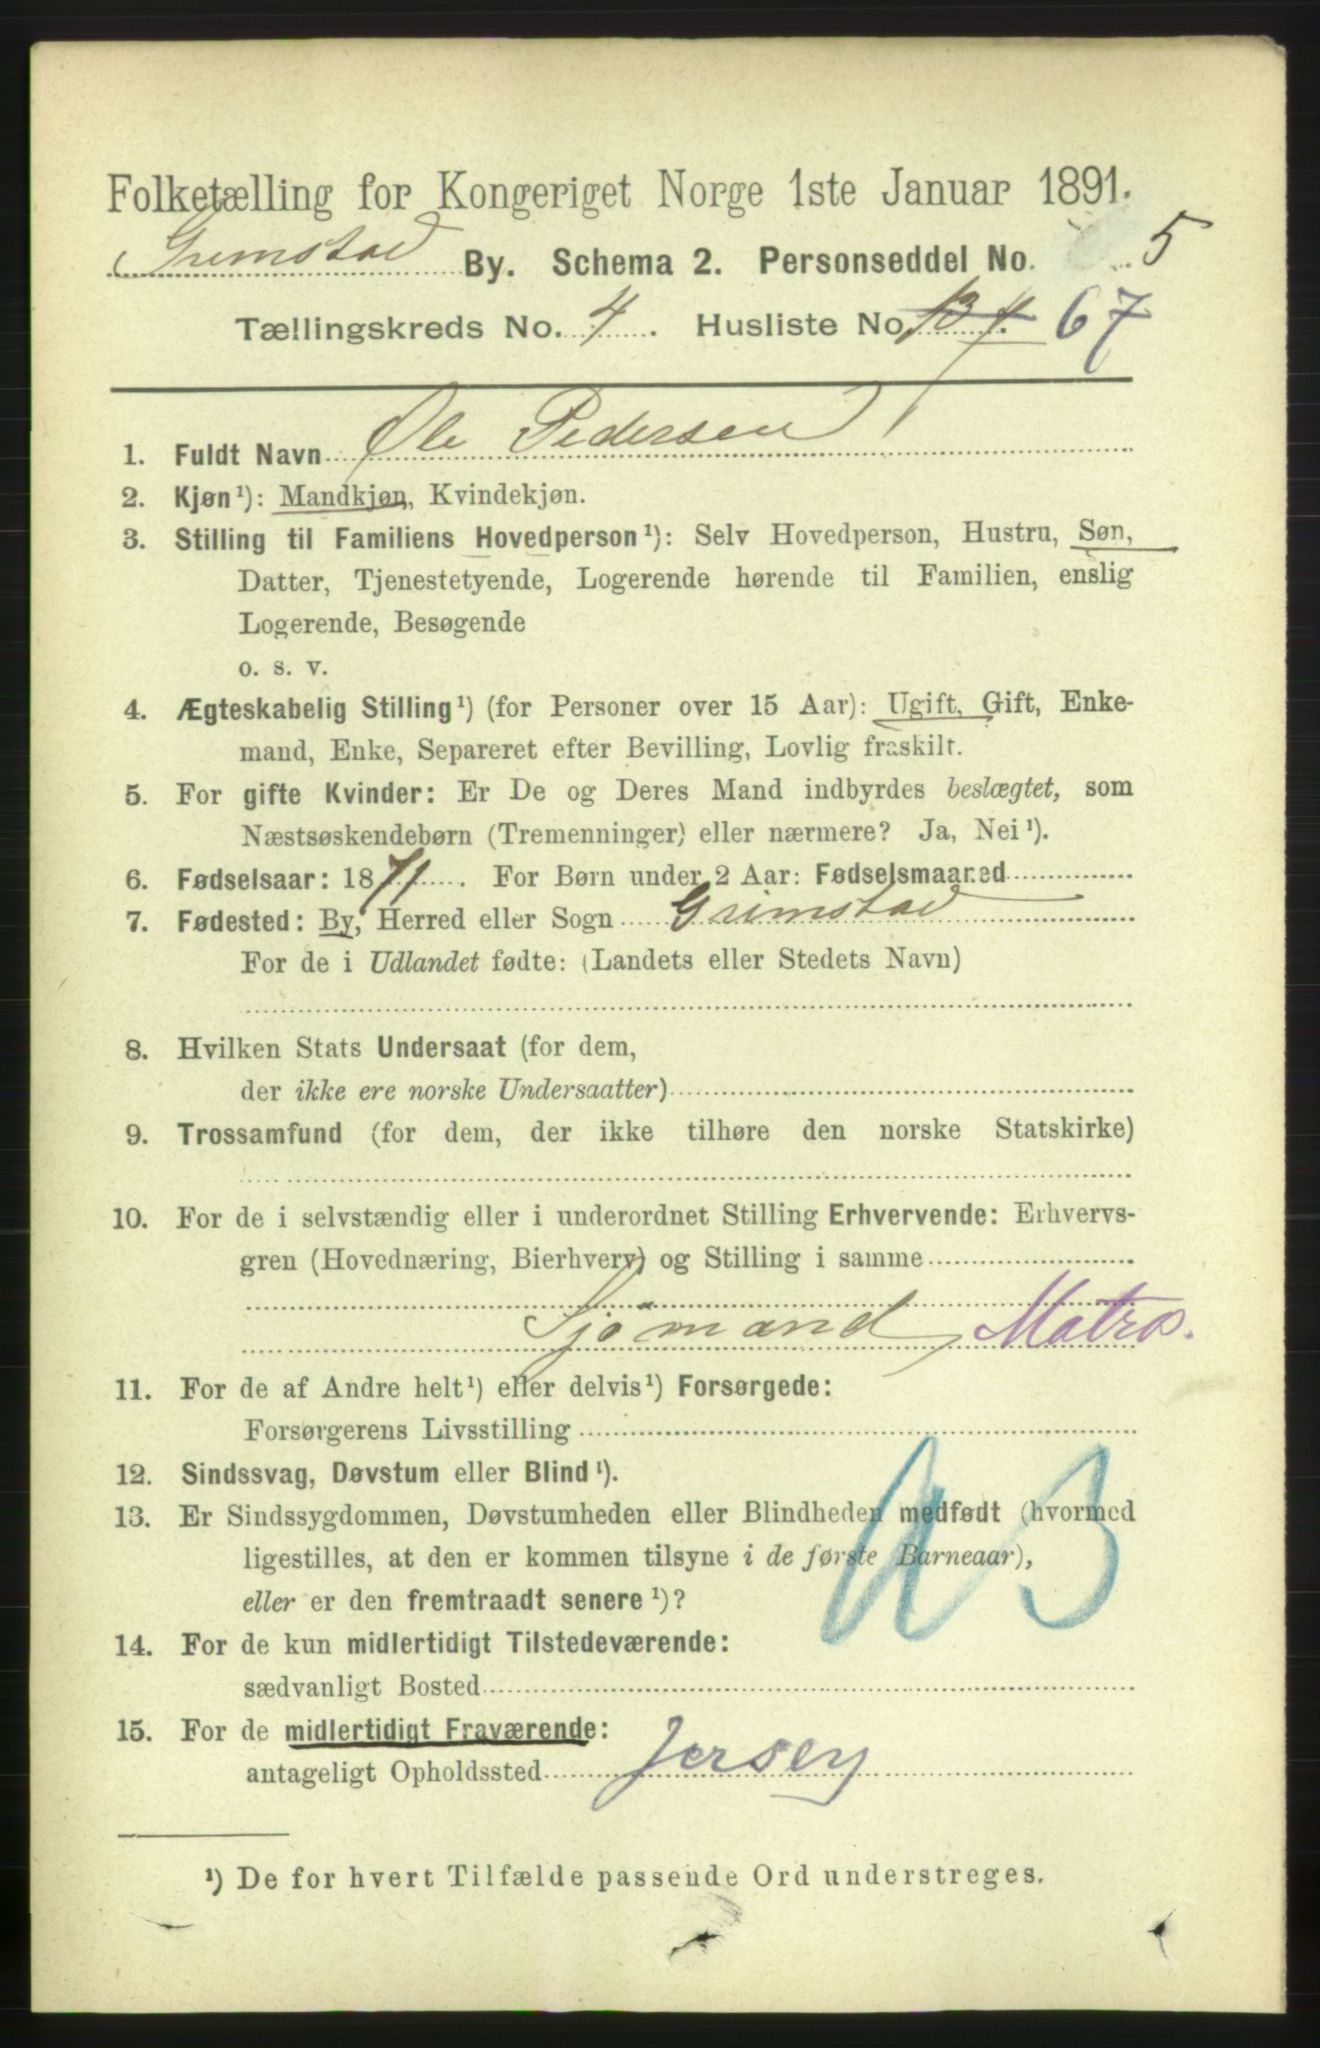 Folketælling for Kongeriget Norge 1ste Januar 1891.
Grimstad By. Schema 2. Personseddel No. 5
Tællingskreds No. 4. Husliste No. 67
1. Fuldt Navn Ole Pedersen
2. Kjøn¹): Mandkjøn, Kvindekjøn.
3. Stilling til Familiens Hovedperson¹): Selv Hovedperson, Hustru, Søn,
Datter, Tjenestetyende, Logerende hørende til Familien, enslig
Logerende, Besøgende
o. s. v.
4. Ægteskabelig Stilling¹) (for Personer over 15 Aar): Ugift, Gift, Enke-
mand, Enke, Separeret efter Bevilling, Lovlig fraskilt.
5. For gifte Kvinder: Er De og Deres Mand indbyrdes beslægtet, som
Næstsøskendebørn (Tremenninger) eller nærmere? Ja, Nei¹).
6. Fødselsaar: 1871. For Børn under 2 Aar: Fødselsmaaned
7. Fødested: By, Herred eller Sogn Grimstad
For de i Udlandet fødte: (Landets eller Stedets Navn)
8. Hvilken Stats Undersaat (for dem,
der ikke ere norske Undersaatter)
9. Trossamfund (for dem, der ikke tilhøre den norske Statskirke)
10. For de i selvstændig eller i underordnet Stilling Erhvervende: Erhvervs-
gren (Hovednæring, Bierhverv) og Stilling i samme
Sjömand, Matros.
11. For de af Andre helt¹) eller delvis¹) Forsørgede:
Forsørgerens Livsstilling
12. Sindssvag, Døvstum eller Blind¹).
13. Er Sindssygdommen, Døvstumheden eller Blindheden medfødt (hvormed
ligestilles, at den er kommen tilsyne i de første Barneaar),
eller er den fremtraadt senere¹)?
14. For de kun midlertidigt Tilstedeværende:
sædvanligt Bosted
15. For de midlertidigt Fraværende:
antageligt Opholdssted Jersey
¹) De for hvert Tilfælde passende Ord understreges.